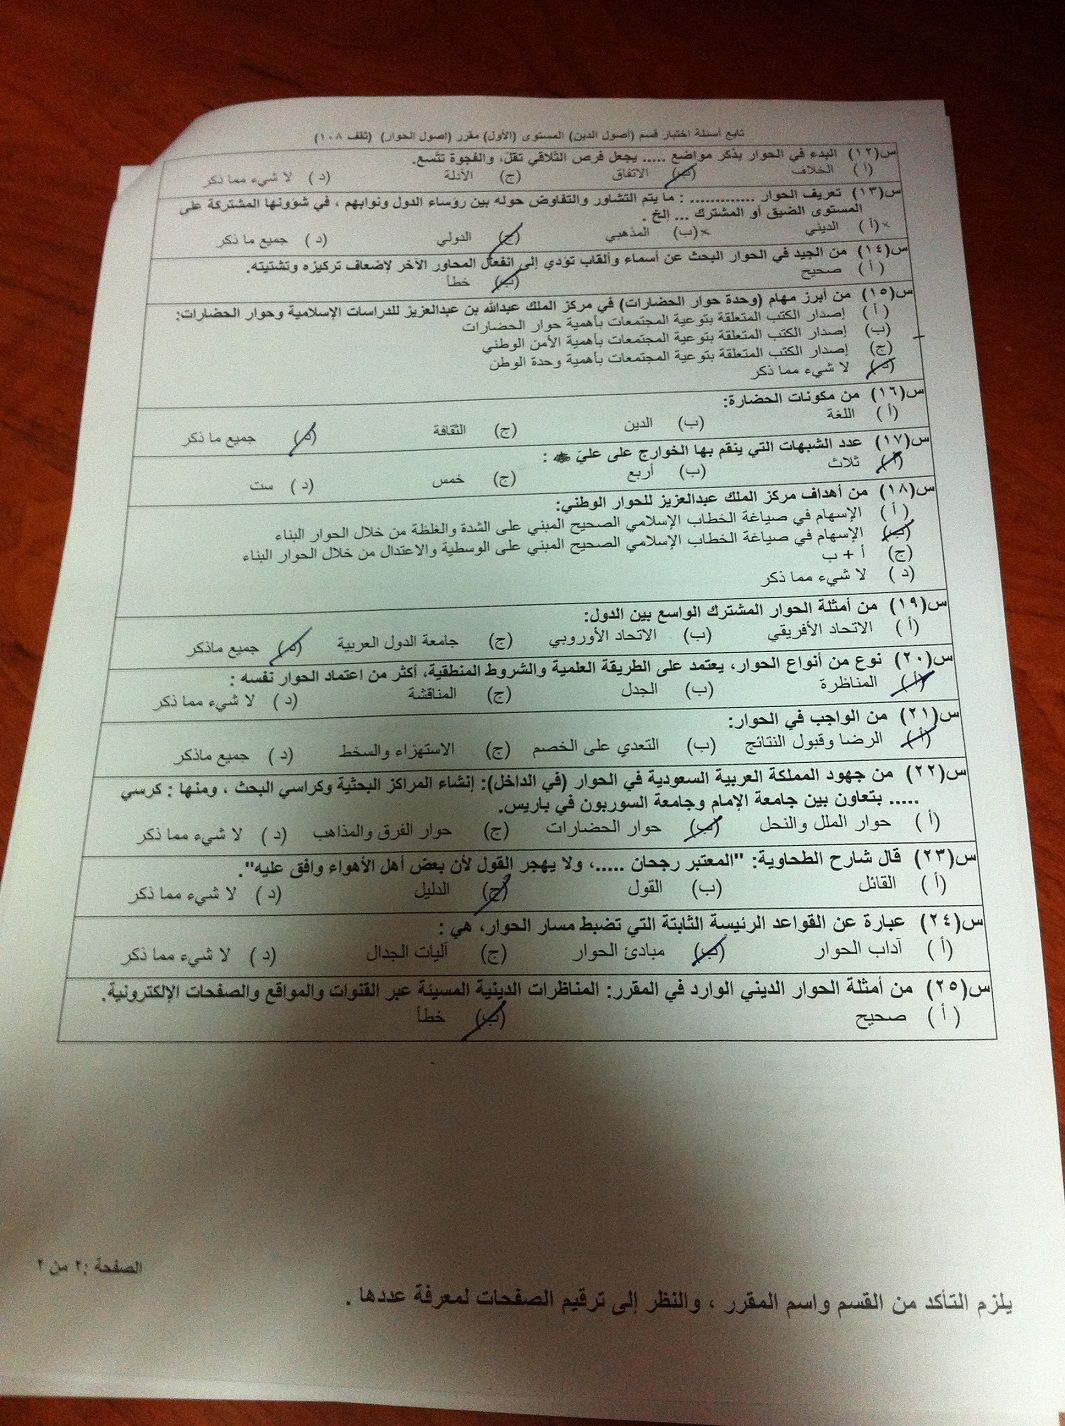 تابع أسئلة اختبار قسم (أصول الدين) المستوى (الأول) مقرر (أصول الحوار) (ثقف ١٠٨)
س(١٢) البدء في الحوار بذكر مواضع ..... يجعل فرص التلاقي تقلّ، والفجوة تتّسع.
(أ) الخلاف (ب) الاتفاق (ج) الأدلة (د) لا شيء مما ذكر
س(١٣) تعريف الحوار ............. : ما يتم التشاور والتفاوض حوله بين رؤساء الدول ونوابهم ، في شؤونها المشتركة على
المستوى الضيق أو المشترك ... إلخ .
(أ) الديني (ب) المذهبي (ج) الدولي (د) جميع ما ذكر
س(١٤) من الجيد في الحوار البحث عن أسماء وألقاب تؤدي إلى انفعال المحاور الآخر لإضعاف تركيزه وتشتيته.
(أ) صحيح (ب) خطأ
س(١٥) من أبرز مهام (وحدة حوار الحضارات) في مركز الملك عبدالله بن عبدالعزيز للدراسات الإسلامية وحوار الحضارات:
(أ) إصدار الكتب المتعلقة بتوعية المجتمعات بأهمية حوار الحضارات
(ب) إصدار الكتب المتعلقة بتوعية المجتمعات بأهمية الأمن الوطني
(ج) إصدار الكتب المتعلقة بتوعية المجتمعات بأهمية وحدة الوطن
(د) لا شيء مما ذكر
س(١٦) من مكونات الحضارة:
(أ) اللغة (ب) الدين (ج) الثقافة (د) جميع ما ذكر
س(١٧) عدد الشبهات التي ينقم بها الخوارج على عليّ :
(أ) ثلاث (ب) أربع (ج) خمس (د) ست
س(١٨) من أهداف مركز الملك عبدالعزيز للحوار الوطني:
(أ) الإسهام في صياغة الخطاب الإسلامي الصحيح المبني على الشدة والغلظة من خلال الحوار البناء
(ب) الإسهام في صياغة الخطاب الإسلامي الصحيح المبني على الوسطية والاعتدال من خلال الحوار البناء
(ج) أ + ب
(د) لا شيء مما ذكر
س(١٩) من أمثلة الحوار المشترك الواسع بين الدول:
(أ) الاتحاد الأفريقي (ب) الاتحاد الأوروبي (ج) جامعة الدول العربية (د) جميع ماذكر
س(٢٠) نوع من أنواع الحوار، يعتمد على الطريقة العلمية والشروط المنطقية، أكثر من اعتماد الحوار نفسه :
(أ) المناظرة (ب) الجدل (ج) المناقشة (د) لا شيء مما ذكر
س(٢١) من الواجب في الحوار:
(أ) الرضا وقبول النتائج (ب) التعدي على الخصم (ج) الاستهزاء والسخط (د) جميع ماذكر
س(٢٢) من جهود المملكة العربية السعودية في الحوار (في الداخل): إنشاء المراكز البحثية وكراسي البحث ، ومنها : كرسي
..... بتعاون بين جامعة الإمام وجامعة السوربون في باريس.
(أ) حوار الملل والنحل (ب) حوار الحضارات (ج) حوار الفرق والمذاهب (د) لا شيء مما ذكر
س(٢٣) قال شارح الطحاوية: "المعتبر رجحان .....، ولا يهجر القول لأن بعض أهل الأهواء وافق عليه".
(أ) القائل (ب) القول (ج) الدليل (د) لا شيء مما ذكر
س(٢٤) عبارة عن القواعد الرئيسة الثابتة التي تضبط مسار الحوار، هي :
(أ) آداب الحوار (ب) مبادئ الحوار (ج) آليات الجدال (د) لا شيء مما ذكر
س(٢٥) من أمثلة الحوار الديني الوارد في المقرر: المناظرات الدينية المسيئة عبر القنوات والمواقع والصفحات الإلكترونية.
(أ) صحيح (ب) خطأ
الصفحة :٢ من ٢
يلزم التأكد من القسم واسم المقرر ، والنظر إلى ترقيم الصفحات لمعرفة عددها .